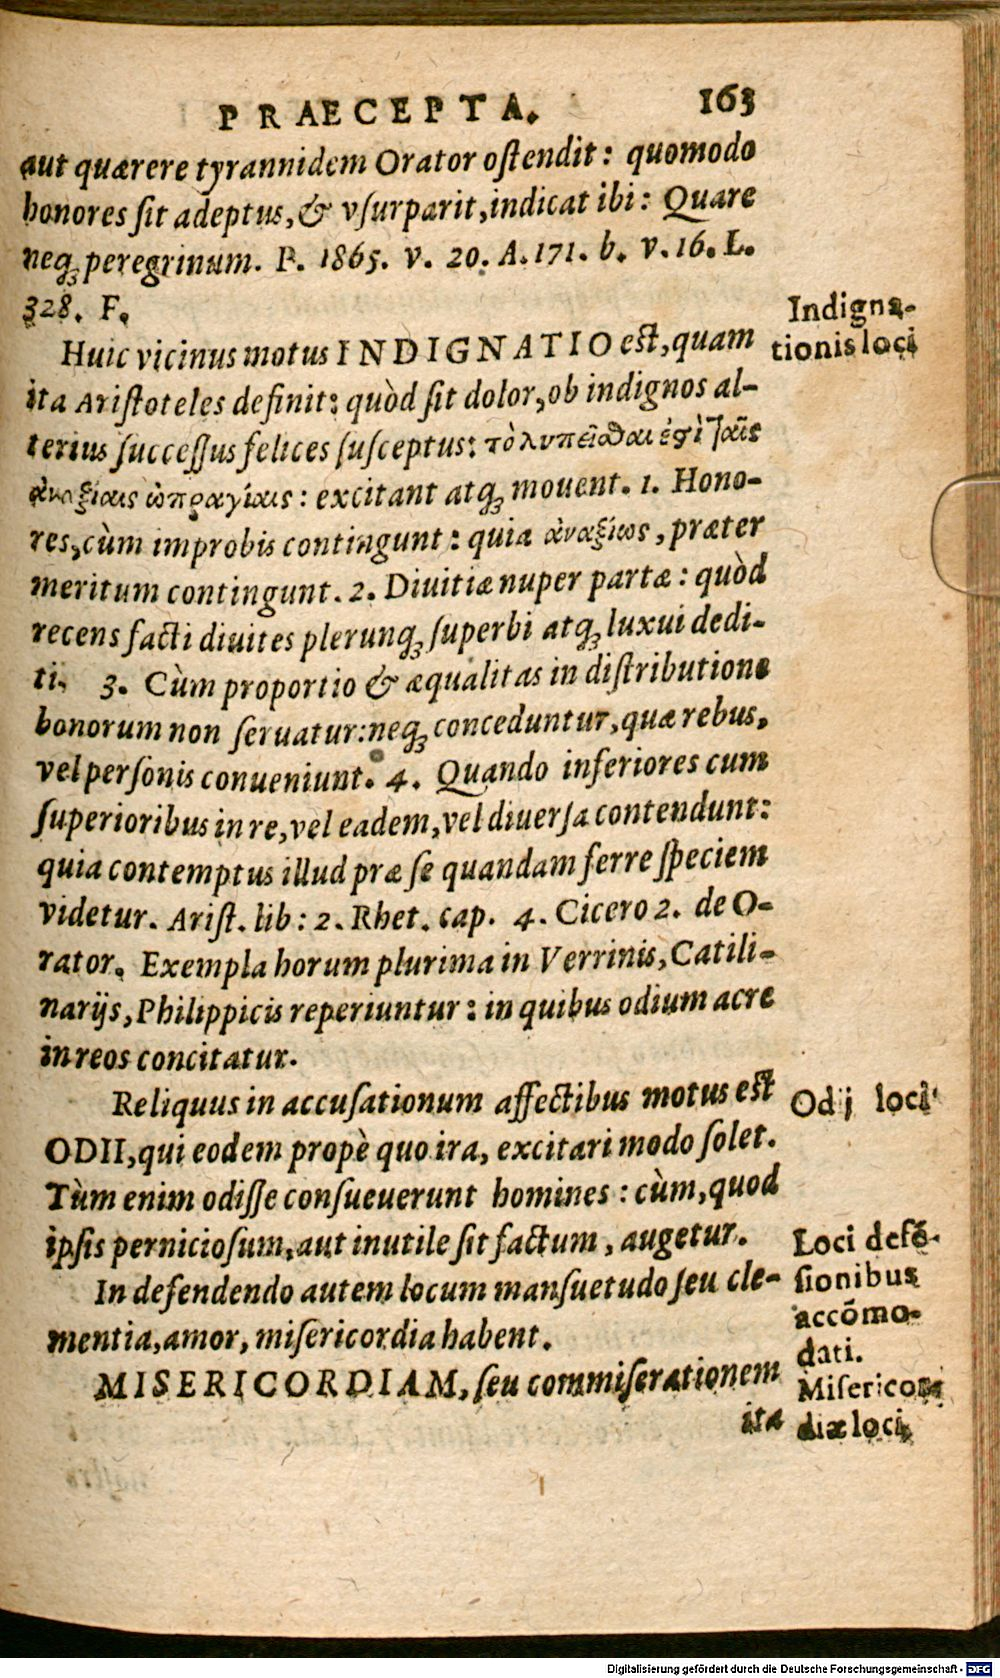 PRAECEPTA. 163
aut quærere tyrannidem Orator ostendit: quomodo
honores sit adeptus, & vsurparit, indicat ibi: Quare
neq; peregrinum. P. 1865. v. 20. A. 171. b. v. 16. L.
328. F.
Huic vicinus motus INDIGNATIO est, quam
ita Aristoteles definit: quòd sit dolor, ob indignos al-
terius successus felices susceptus: τὸ λυπεῖσθαι ἐπὶ ταῖς
ἀναξίαις ὠπραγίαις: excitant atq; mouent. 1. Hono-
res, cùm improbis contingunt: quia ἀναξίως, præter
meritum contingunt. 2. Diuitiæ nuper partæ: quòd
recens facti diuites plerunq; superbi atq; luxui dedi-
ti. 3. Cùm proportio & æqualitas in distributione
bonorum non seruatur: neq; conceduntur, quæ rebus,
vel personis conueniunt. 4. Quando inferiores cum
superioribus in re, vel eadem, vel diuersa contendunt:
quia contemptus illud præ se quandam ferre speciem
videtur. Arist. lib: 2. Rhet. cap. 4. Cicero 2. de O-
rator. Exempla horum plurima in Verrinis, Catili-
narijs, Philippicis reperiuntur: in quibus odium acre
in reos concitatur.
Reliquus in accusationum affectibus motus est
ODII, qui eodem propè quo ira, excitari modo solet.
Tùm enim odisse consueuerunt homines: cùm, quod
ipsis perniciosum, aut inutile sit factum, augetur.
In defendendo autem locum mansuetudo seu cle-
mentia, amor, misericordia habent.
MISERICORDIAM, seu commiserationem
ita
Indigna-
tionis loci
Odij loci
Loci defẽ-
sionibus
accõmo-
dati.
Misericor
diæ loci
Digitalisierung gefördert durch die Deutsche Forschungsgemeinschaft - DFG